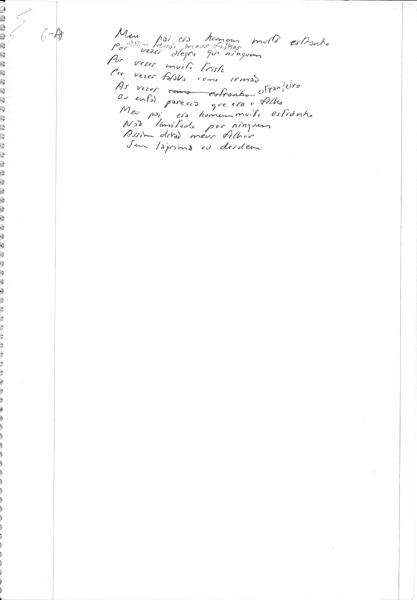 5
6-A
Meu pai era homem muito estranho
Assim dirão meus filhos
Por vezes alegre que ninguém
Por vezes muito triste
Por vezes falava como irmão
As vezes como estranho estranjeiro
Ou então parecia que era o filho
Meu pai era homem muito estranho
Não limitado por ninguém
Assim dirão meus filhos
Sem lágrima ou desdem